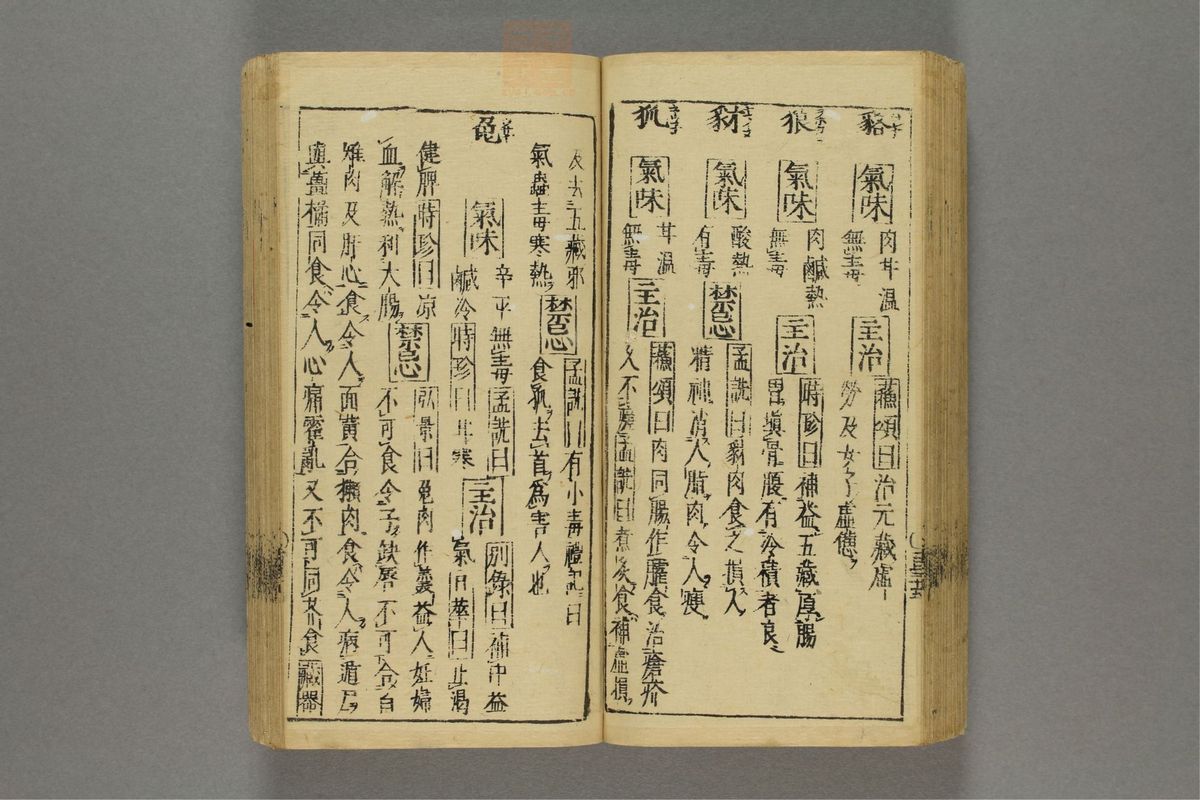 貉 氣味 肉甘溫
無毒 主治 蘇頌曰治元藏虛
勞及女子虛憊
狼 氣味 肉鹹熱
無毒 主治 時珍曰補益五藏厚腸
胃填骨髓有冷積者良
豺 氣味 酸熱
有毒 禁忌 孟詵曰豺肉食之損人
精神消人脂肉令人瘦
狐 氣味 甘溫
無毒 主治 蘇頌曰肉同腸作臛食治瘡疥
久不瘥孟詵曰煮炙食補虛損
及去五藏邪
氣蠱毒寒熱 禁忌 孟詵曰有小毒禮記曰
食狐去首為害人也
兔 氣味 辛平無毒孟詵曰
鹹冷時珍曰甘寒 主治 別錄曰補中益
氣日華曰止渴
健脾時珍曰涼
血解熱利大腸 禁忌 弘景曰兔肉作羹益人妊婦
不可食令子缺唇不可合白
雞肉及肝心食令人面黃合獺肉食令人病遁尸
與薑橘同食令人心痛霍亂又不可同芥食藏器